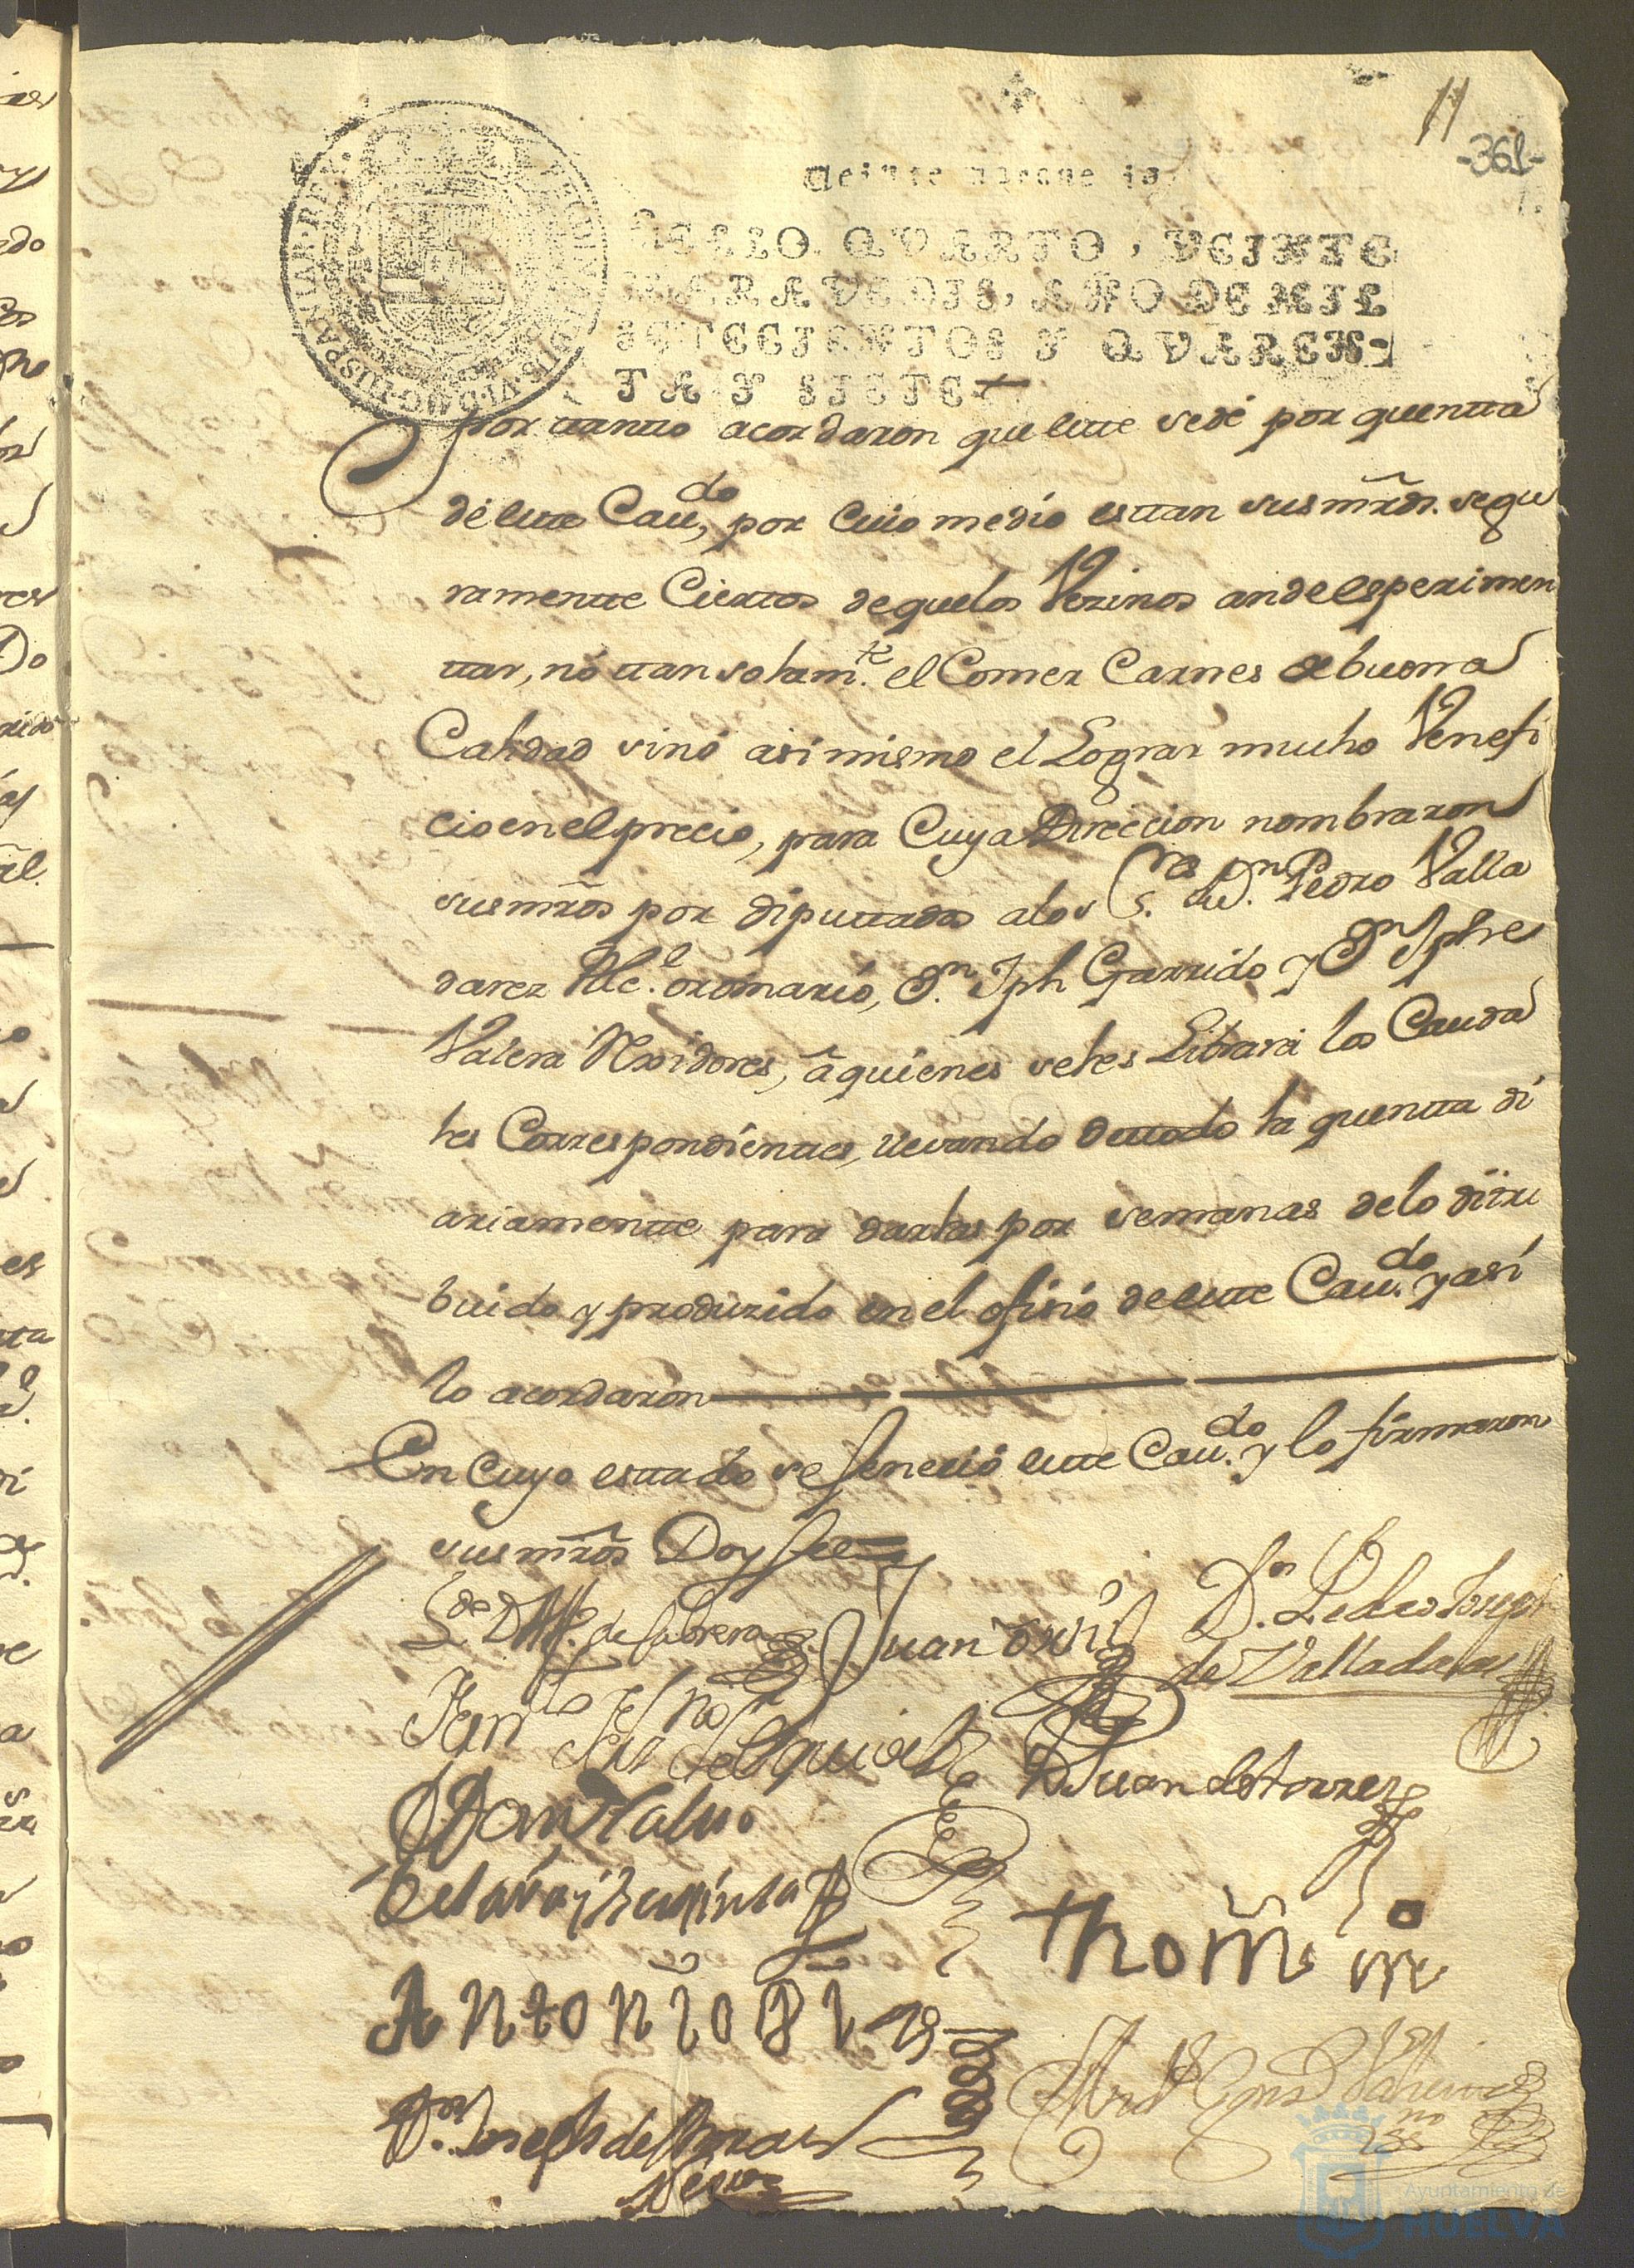 11
-361-
Veinte marave is
SELLO QVARTO, VEINTE
MARAVEDIS, AÑO DE MIL
SETECIENTOS Y QVAREN-
TA Y SIETE
por ttantto acordaron que este se dé por quentta
de este Cau.do, por Cuio medio esttan sus mrds. segu
ramentte Ciertos de que los Vezinos an de esperimen
ttar, nó ttan solam.te el Comer Carnes de buena
Calidad sinó asi mismo el Lograr mucho Venefi
cio en el precio, para Cuya Direccion nombraron
sus mrds por diputtados a los S.res Dn. Pedro Valla
darez Alc.e ordinario, Dn. Jph Garrido y Dn Jphe
Valera Rexidores, á quienes se les Librará los Cauda
les Correspondientes, llevando de ttodo la quentta di
ariamentte para darlas por semanas de lo distri
buido y produzido en el ofizio de este Cau.do y así
lo acordaron
En Cuyo esttado se feneció este Cau.do y lo firmaron
sus mrds Doy fee
de Cabrera
Juan
D.n Pedro Joseph
de Valladares
de Esquivel
D Juan de torres
Antonio
D.n Joseph de
Ayuntamiento de
HUELVA